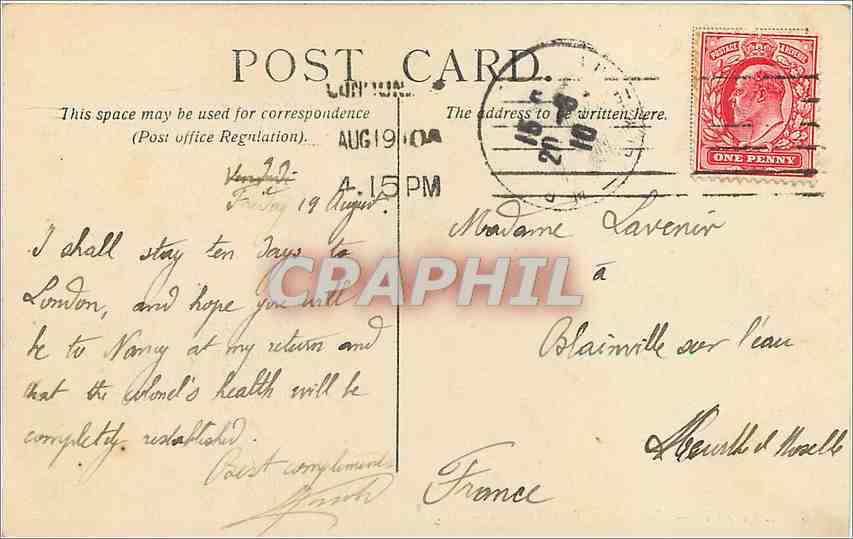 POST CARD.
This space may be used for correspondence
(Post office Regulation).
The address to be written here.
LONDON.
AUG 19 10
4.15 PM
15
20-8
10
POSTAGE & REVENUE
ONE PENNY
Vendredi
Friday 19 August.
I shall stay ten days to
London, and hope you will
be to Nancy at my return and
that the colonel's health will be
completely restablished.
Best compliments
Madame Lavenir
à
Blainville sur l'eau
Meurthe et Moselle
France
CPAPHIL